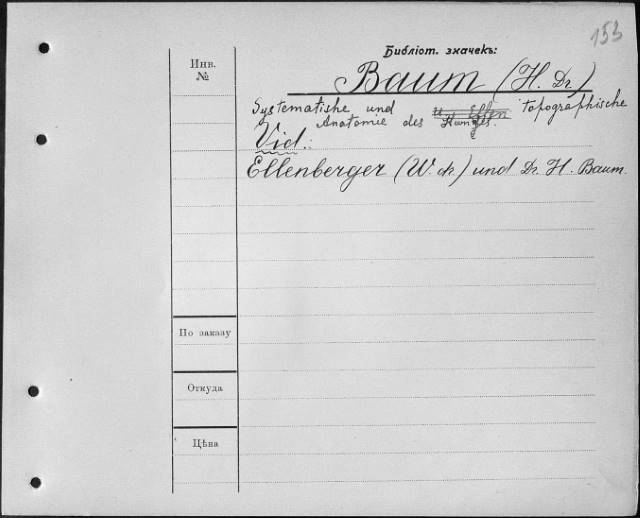 153
Библіот. значекъ:
Инв. №
Baum (H. Dr.)
Systematishe und topographische
Anatomie des
Vid.:
Ellenberger (W. dr.) und Dr. H. Baum.
По заказу
Откуда
Цѣна